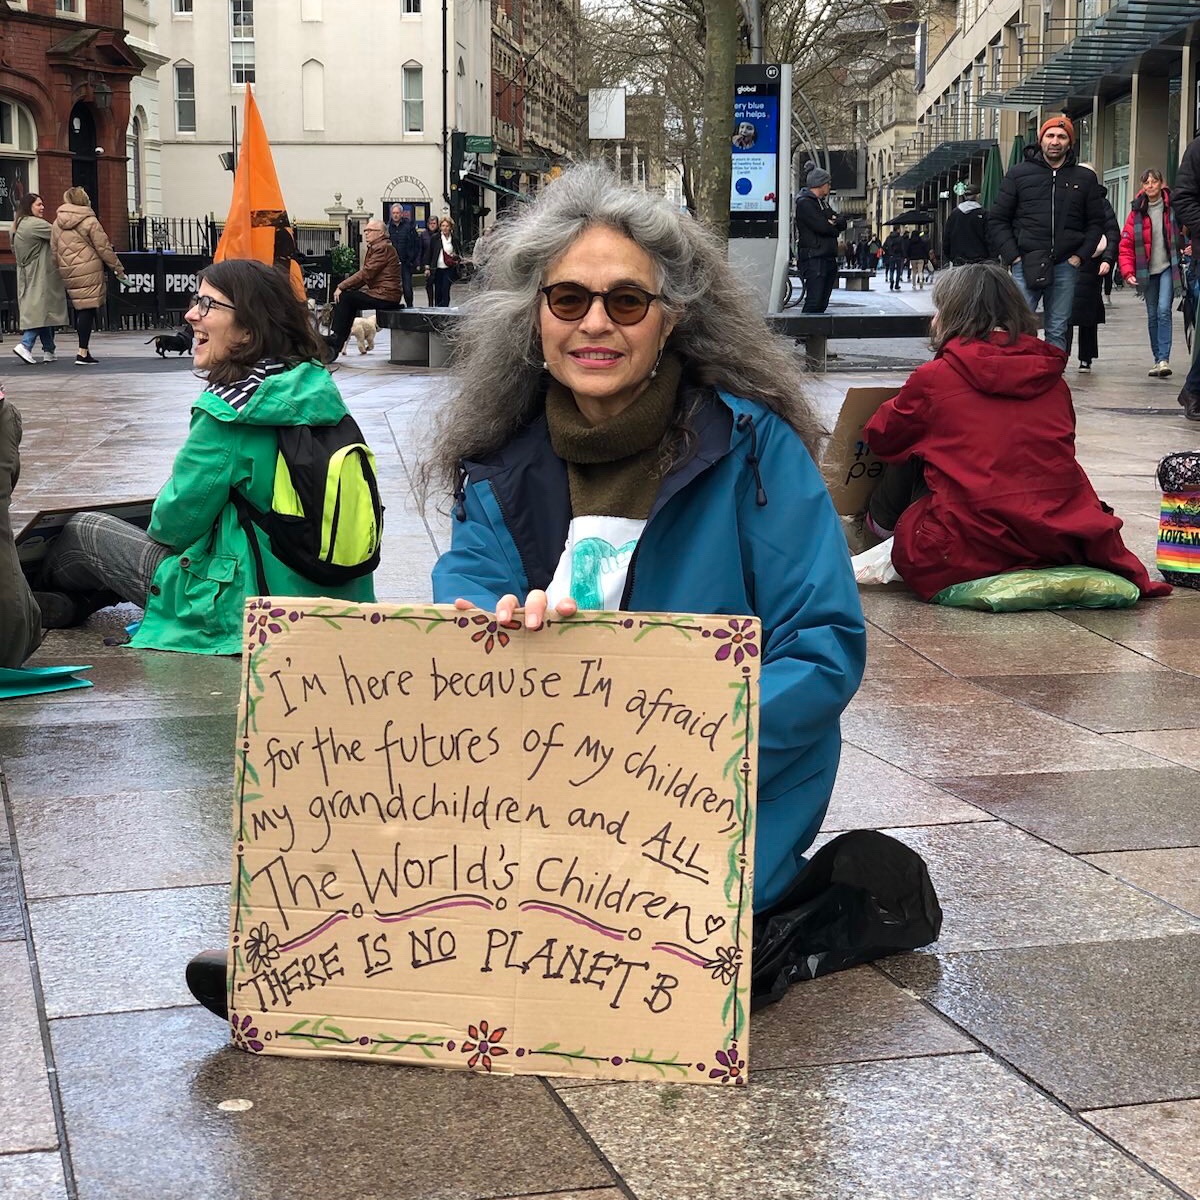 BT
global
ery blue
en helps
TABERNACL
PEPSI PEPSI
I'm here because I'm afraid
for the futures of my children,
my grandchildren and ALL
The World's Children
THERE IS NO PLANET B
LOVE